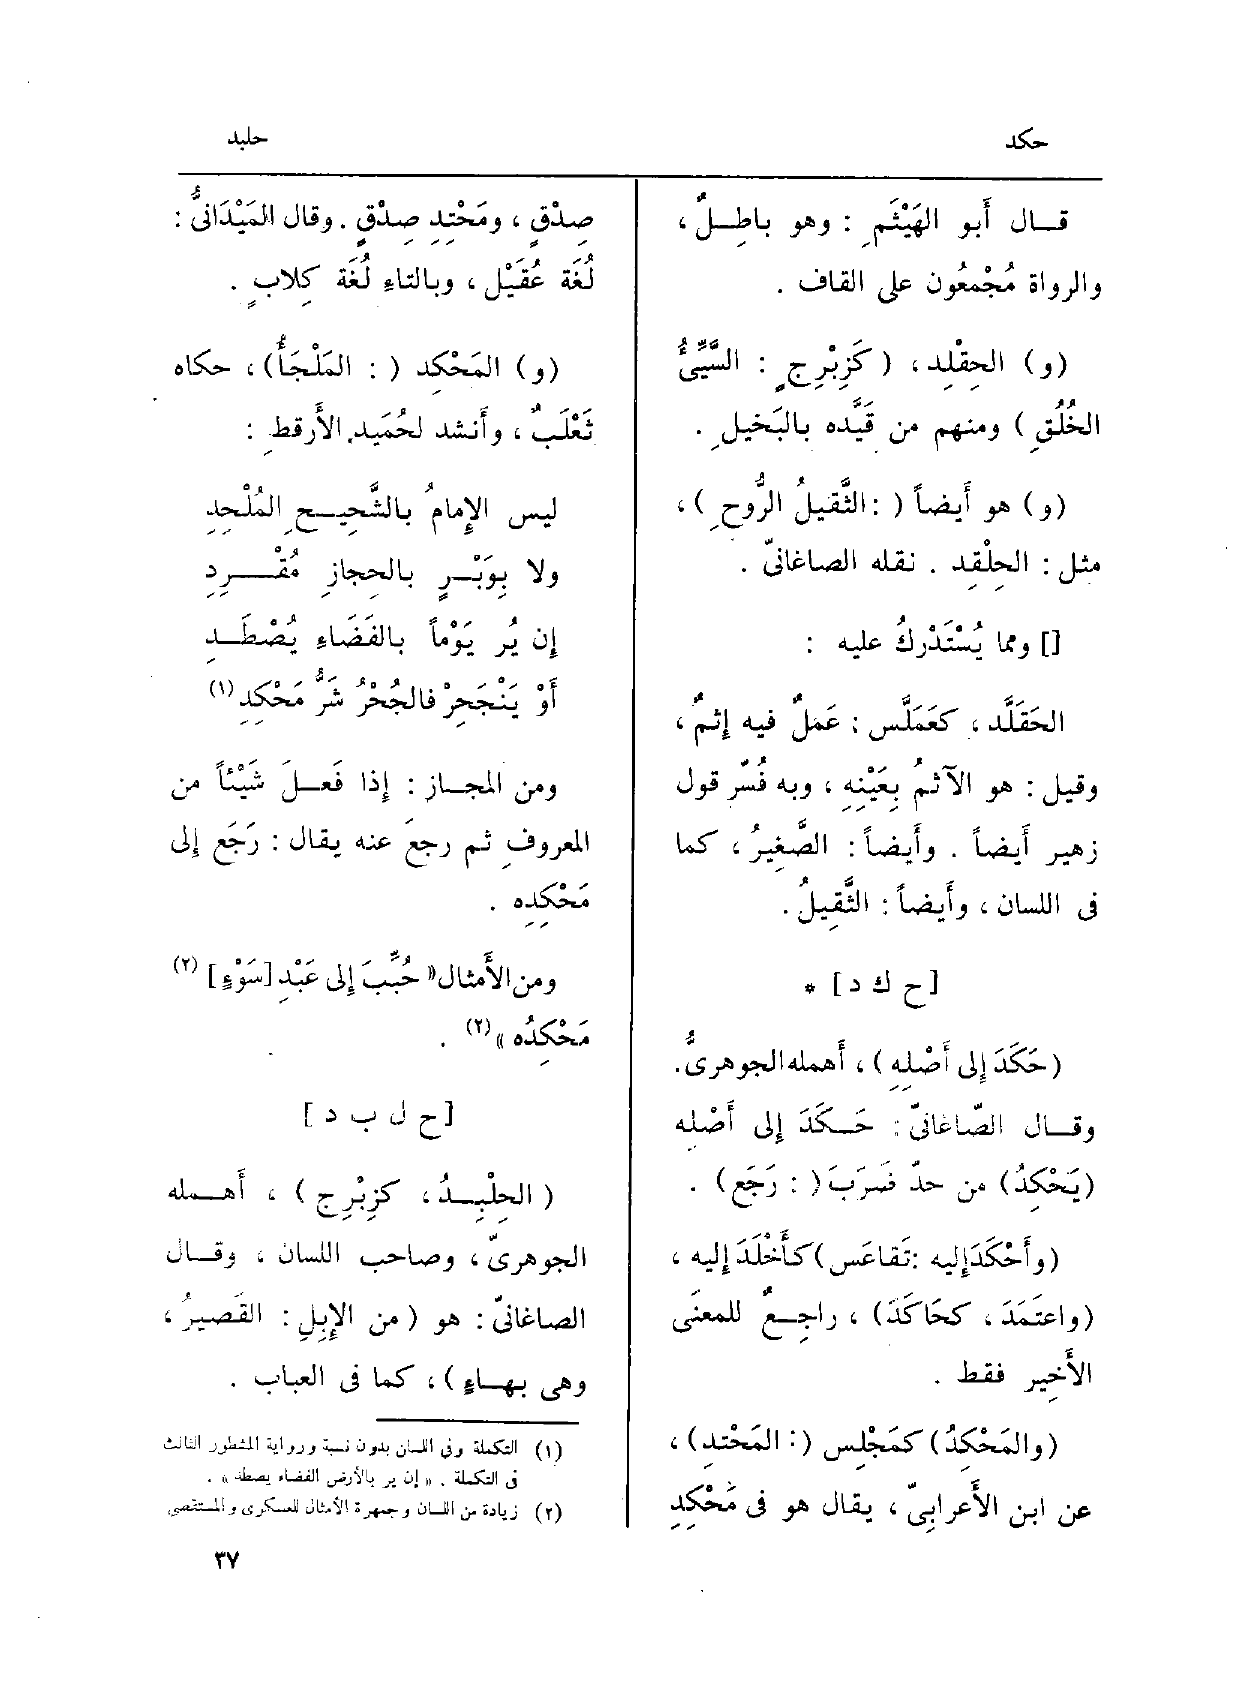 حكد
حلبد
قال أبو الهَيْثَمِ : وهو باطِلٌ ،
والرواة مُجْمعُون على القاف .
(و) الحِقْلِد ، (كَزِبْرِجٍ : السَّيِّئُ
الخُلُقِ) ومنهم من قَيَّده بالبَخيلِ .
(و) هو أيضاً (: الثَّقيلُ الرُّوحِ) ،
مثل : الحِلْقِد . نقله الصاغانىّ .
[] ومما يُسْتَدْركُ عليه :
الحَقَلَّد ، كعَمَلَّس : عَملٌ فيه إثمٌ ،
وقيل : هو الآثمُ بِعَيْنِهِ ، وبه فُسِّر قول
زهير أيضاً . وأيضاً : الصَّغِيرُ ، كما
فى اللسان ، وأيضاً : الثَّقِيلُ .
[ح ك د] *
(حَكَدَ إلى أَصْلِهِ) ، أهمله الجوهرىُّ.
وقال الصّاغانىّ : حَكَدَ إلى أَصْلِه
(يَحْكِدُ) من حدّ ضَرَبَ (: رَجَع) .
(وأَحْكَدَ إليه : تَقاعَس) كأَخْلَدَ إليه ،
(واعتَمَدَ ، كحَاكَدَ) ، راجِعٌ للمعنَى
الأَخِير فقط .
(والمَحْكِدُ) كمَجْلِس (: المَحْتد) ،
عن ابن الأَعرابِىّ ، يقال هو فى مَحْكِدِ
صِدْقٍ ، ومَحْتِدِ صِدْقٍ . وقال المَيْدَانىُّ :
لُغَة عُقَيْل ، وبالتاءِ لُغَة كِلابٍ .
(و) المَحْكِد (: المَلْجَأُ) ، حكاه
ثَعْلَبٌ ، وأنشد لحُمَيدِ الأَرقطِ :
ليس الإمامُ بالشَّحِيحِ المُلْحِدِ
ولا بِوَبْرٍ بالحجازِ مُقْرِدِ
إن يُر يَوْماً بالفَضَاءِ يُصْطَدِ
أَوْ يَنْجَحِرْ فالجُحْرُ شَرُّ مَحْكِدِ (١)
ومن المجاز : إذا فَعلَ شَيْئاً من
المعروفِ ثم رجعَ عنه يقال : رَجَع إلى
مَحْكِدِه .
ومن الأَمثال « حُبِّبَ إلى عَبْدِ [سَوْءٍ] (٢)
مَحْكِدُه » (٢) .
[ح ل ب د]
(الحِلْبِدُ ، كزِبْرِج) ، أهمله
الجوهرىّ ، وصاحب اللسان ، وقال
الصاغانىّ : هو (من الإِبِلِ : القَصيرُ ،
وهى بهاءٍ) ، كما فى العباب .
(١) التكملة وفى اللسان بدون نسبة ورواية المشطور الثالث
فى التكملة . « إن ير بالأرض الفضاء يصطد » .
(٢) زيادة من اللسان وجمهرة الأمثال للعسكرى والمستقصى
٣٧